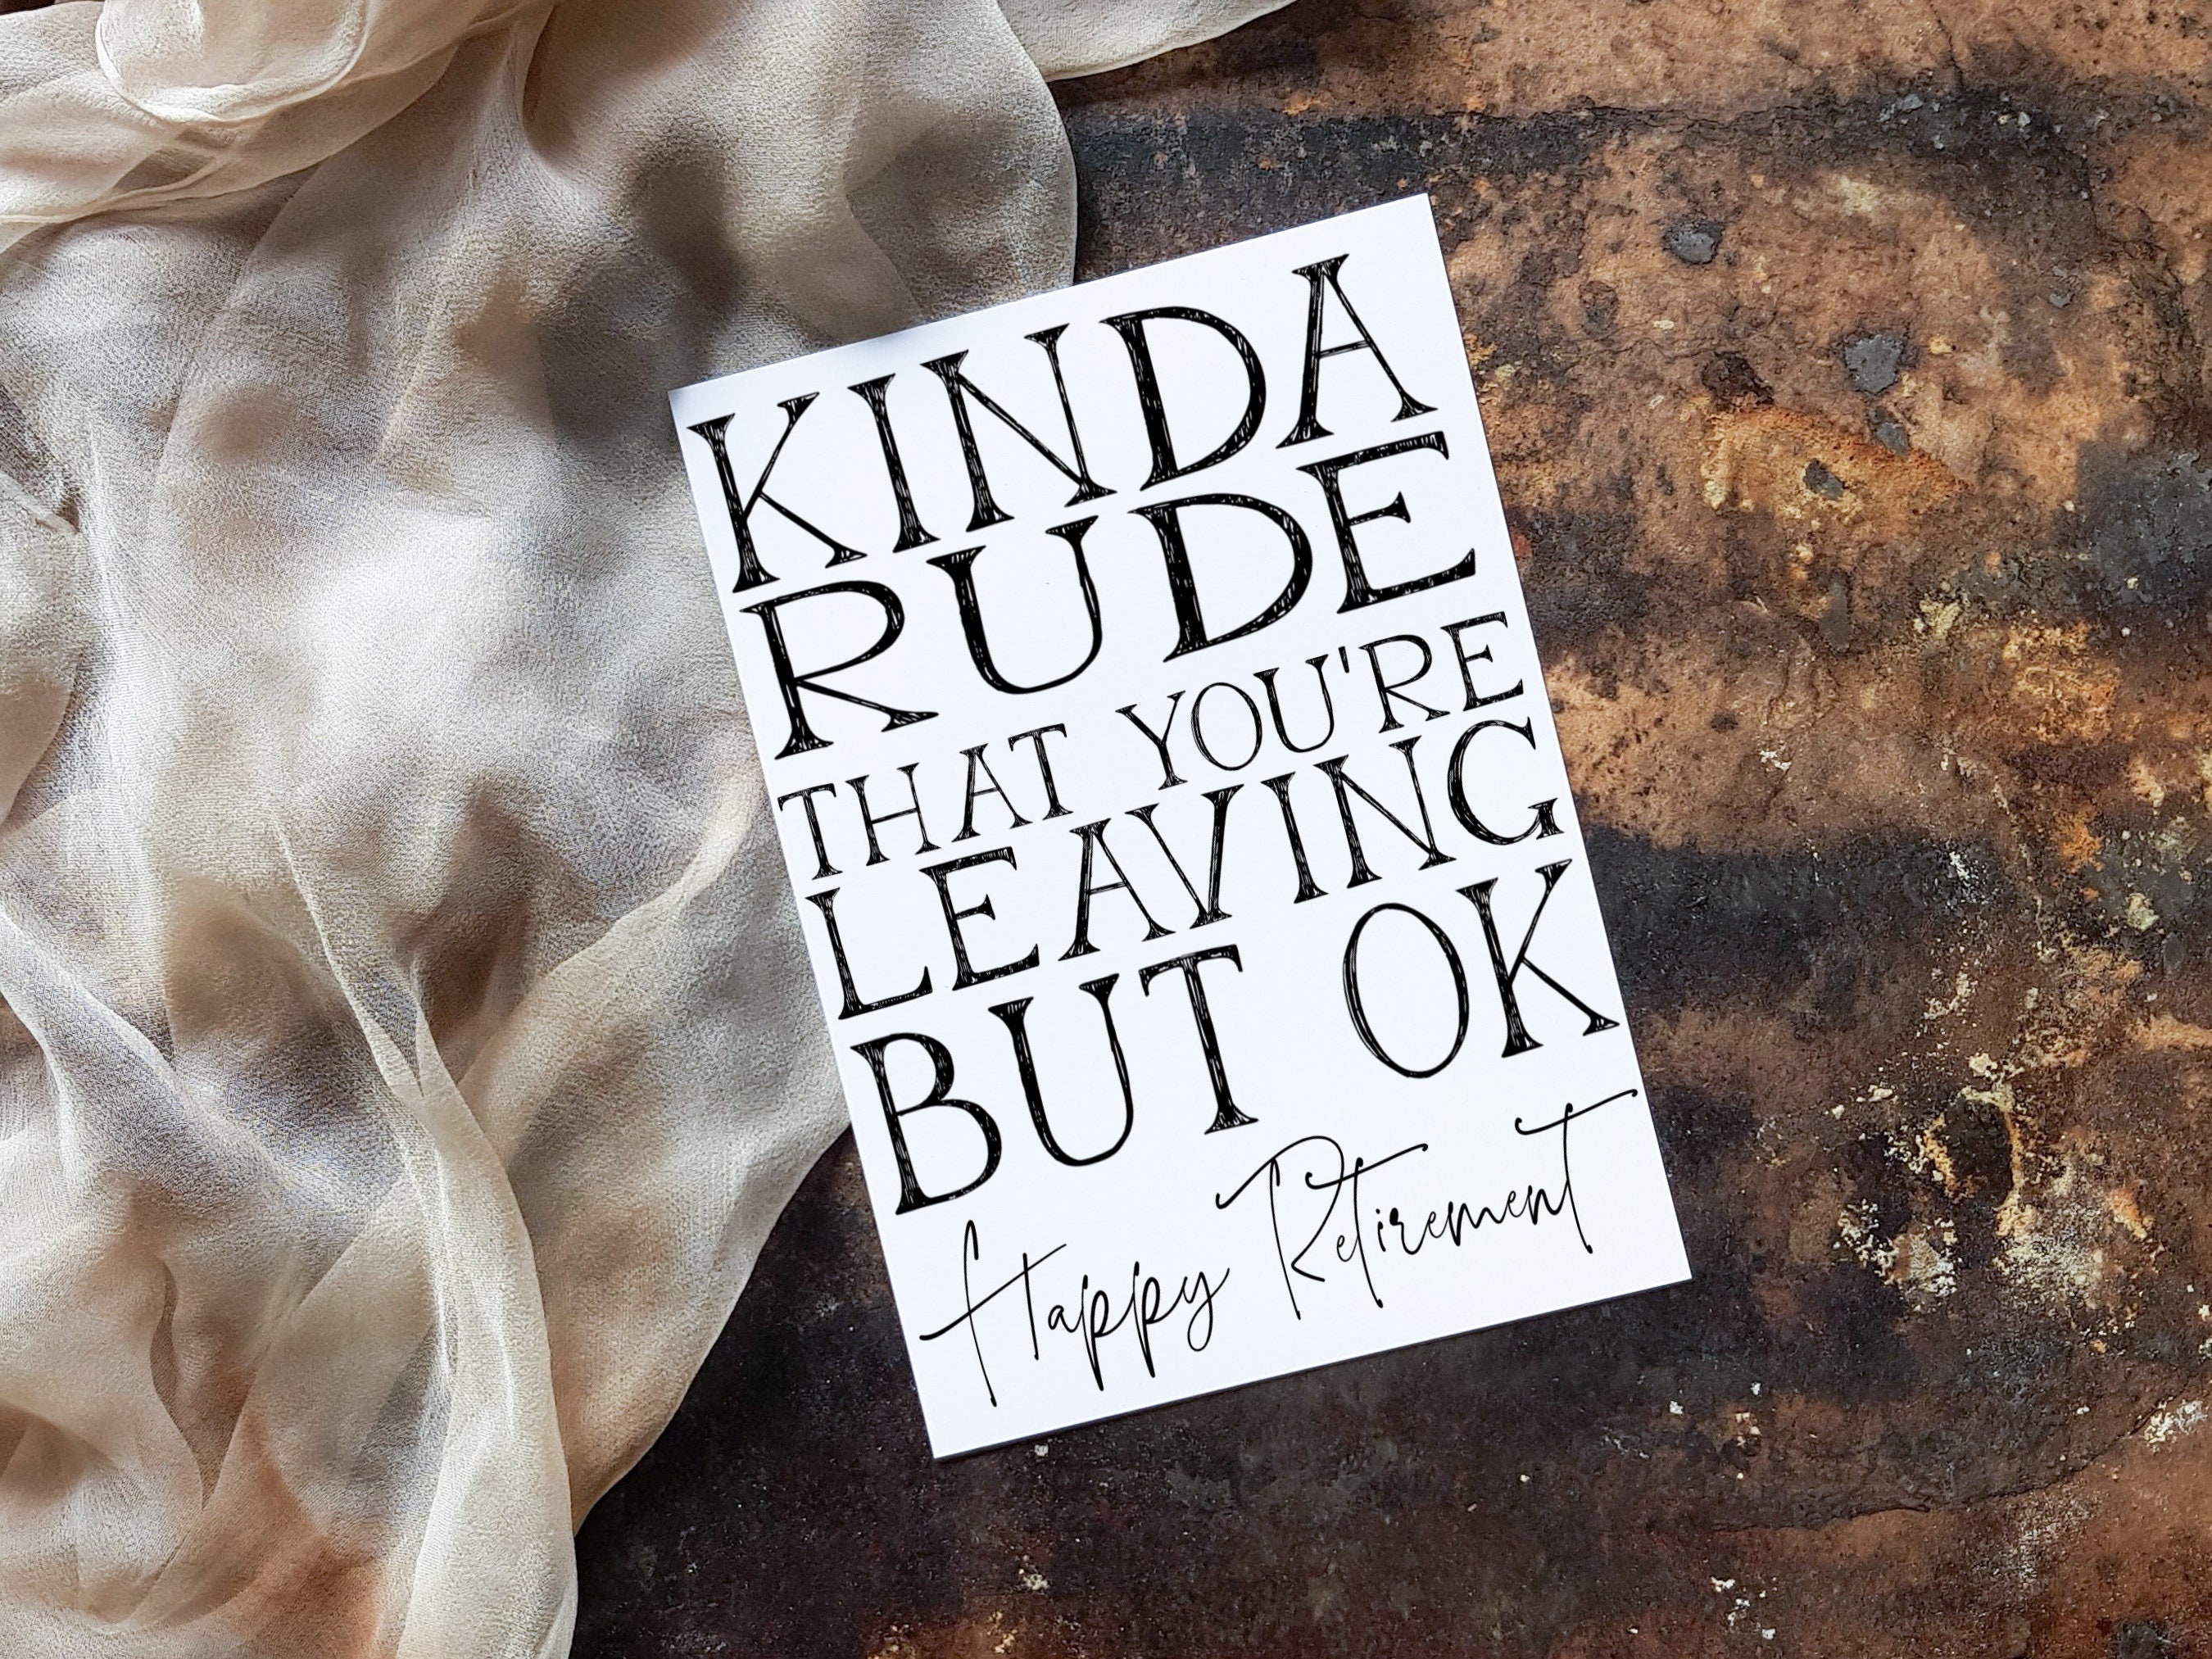 KINDA
RUDE
THAT YOU'RE
LEAVING
BUT OK
Happy Retirement